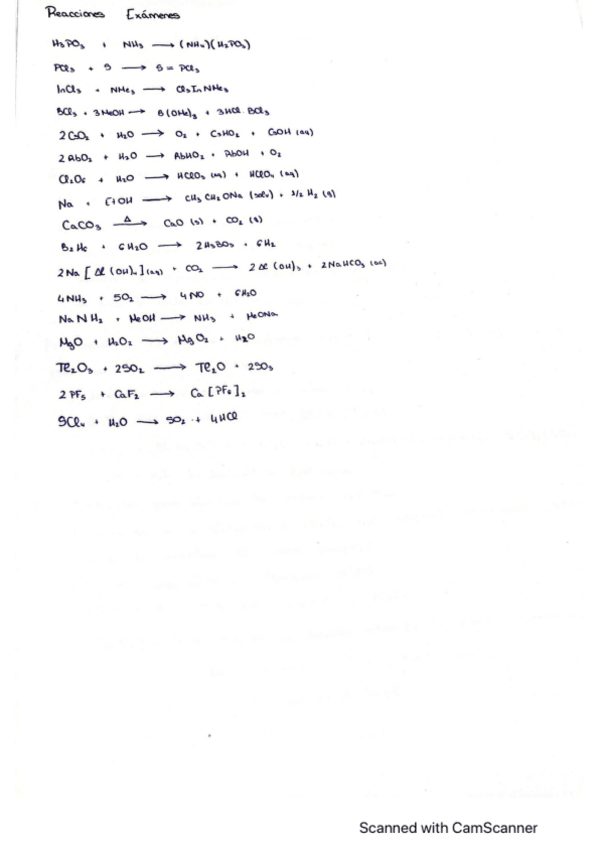 Reacciones Exámenes
H₃PO₃ + NH₃ → (NH₄)(H₂PO₃)
PCl₃ + S → S = PCl₃
InCl₃ + NMe₃ → Cl₃InNMe₃
BCl₃ + 3MeOH → B(OMe)₃ + 3HCl BCl₃
2CsO₂ + H₂O → O₂ + CsHO₂ + CsOH (aq)
2 RbO₂ + H₂O → RbHO₂ + RbOH + O₂
Cl₂O₆ + H₂O → HClO₃ (aq) + HClO₄ (aq)
Na + EtOH → CH₃CH₂ONa (solv) + 1/2 H₂ (g)
CaCO₃ —Δ→ CaO (s) + CO₂ (g)
B₂H₆ + 6H₂O → 2H₃BO₃ + 6H₂
2Na[Al(OH)₄](aq) + CO₂ → 2Al(OH)₃ + 2NaHCO₃ (aq)
4NH₃ + 5O₂ → 4NO + 6H₂O
NaNH₂ + MeOH → NH₃ + MeONa
MgO + H₂O₂ → MgO₂ + H₂O
Tl₂O₃ + 2SO₂ → Tl₂O + 2SO₃
2PF₅ + CaF₂ → Ca[PF₆]₂
SCl₄ + H₂O → SO₂ + 4HCl
Scanned with CamScanner